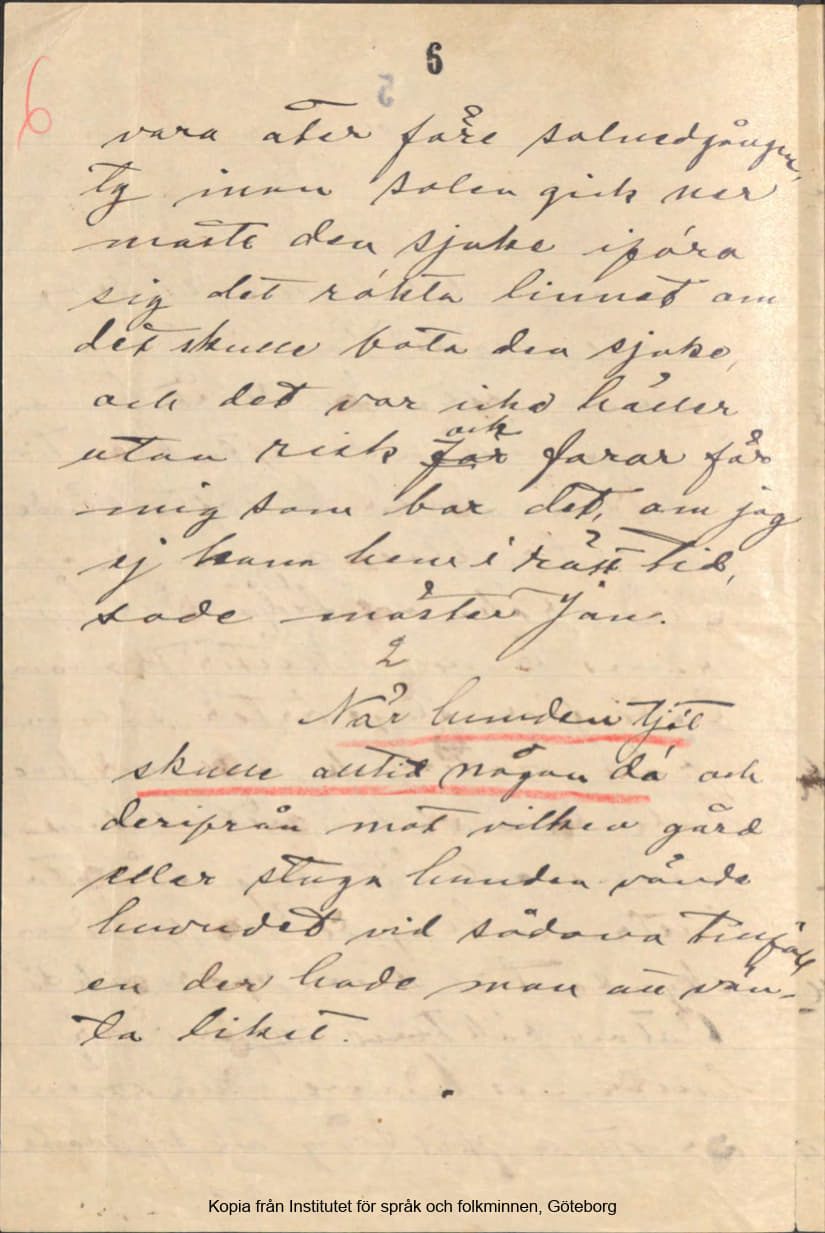 6
6
vara åter före solnedgången,
ty innan solen gick ner
måste den sjuke ipöra
sig det rökta linnet om
det skulle bota den sjuke,
och det var icke häller
utan risk för och farar för
mig som bar det, om jag
ej kann hem i rätt tid,
sade mäster Jan.
2
När hunden tjöt
skulle alltid någon dö och
deriprån mot vilken gård
eller stuga hunden vände
huvudet vid sådana tillfäll
en der hade man att vän-
ta liket.
Kopia från Institutet för språk och folkminnen, Göteborg